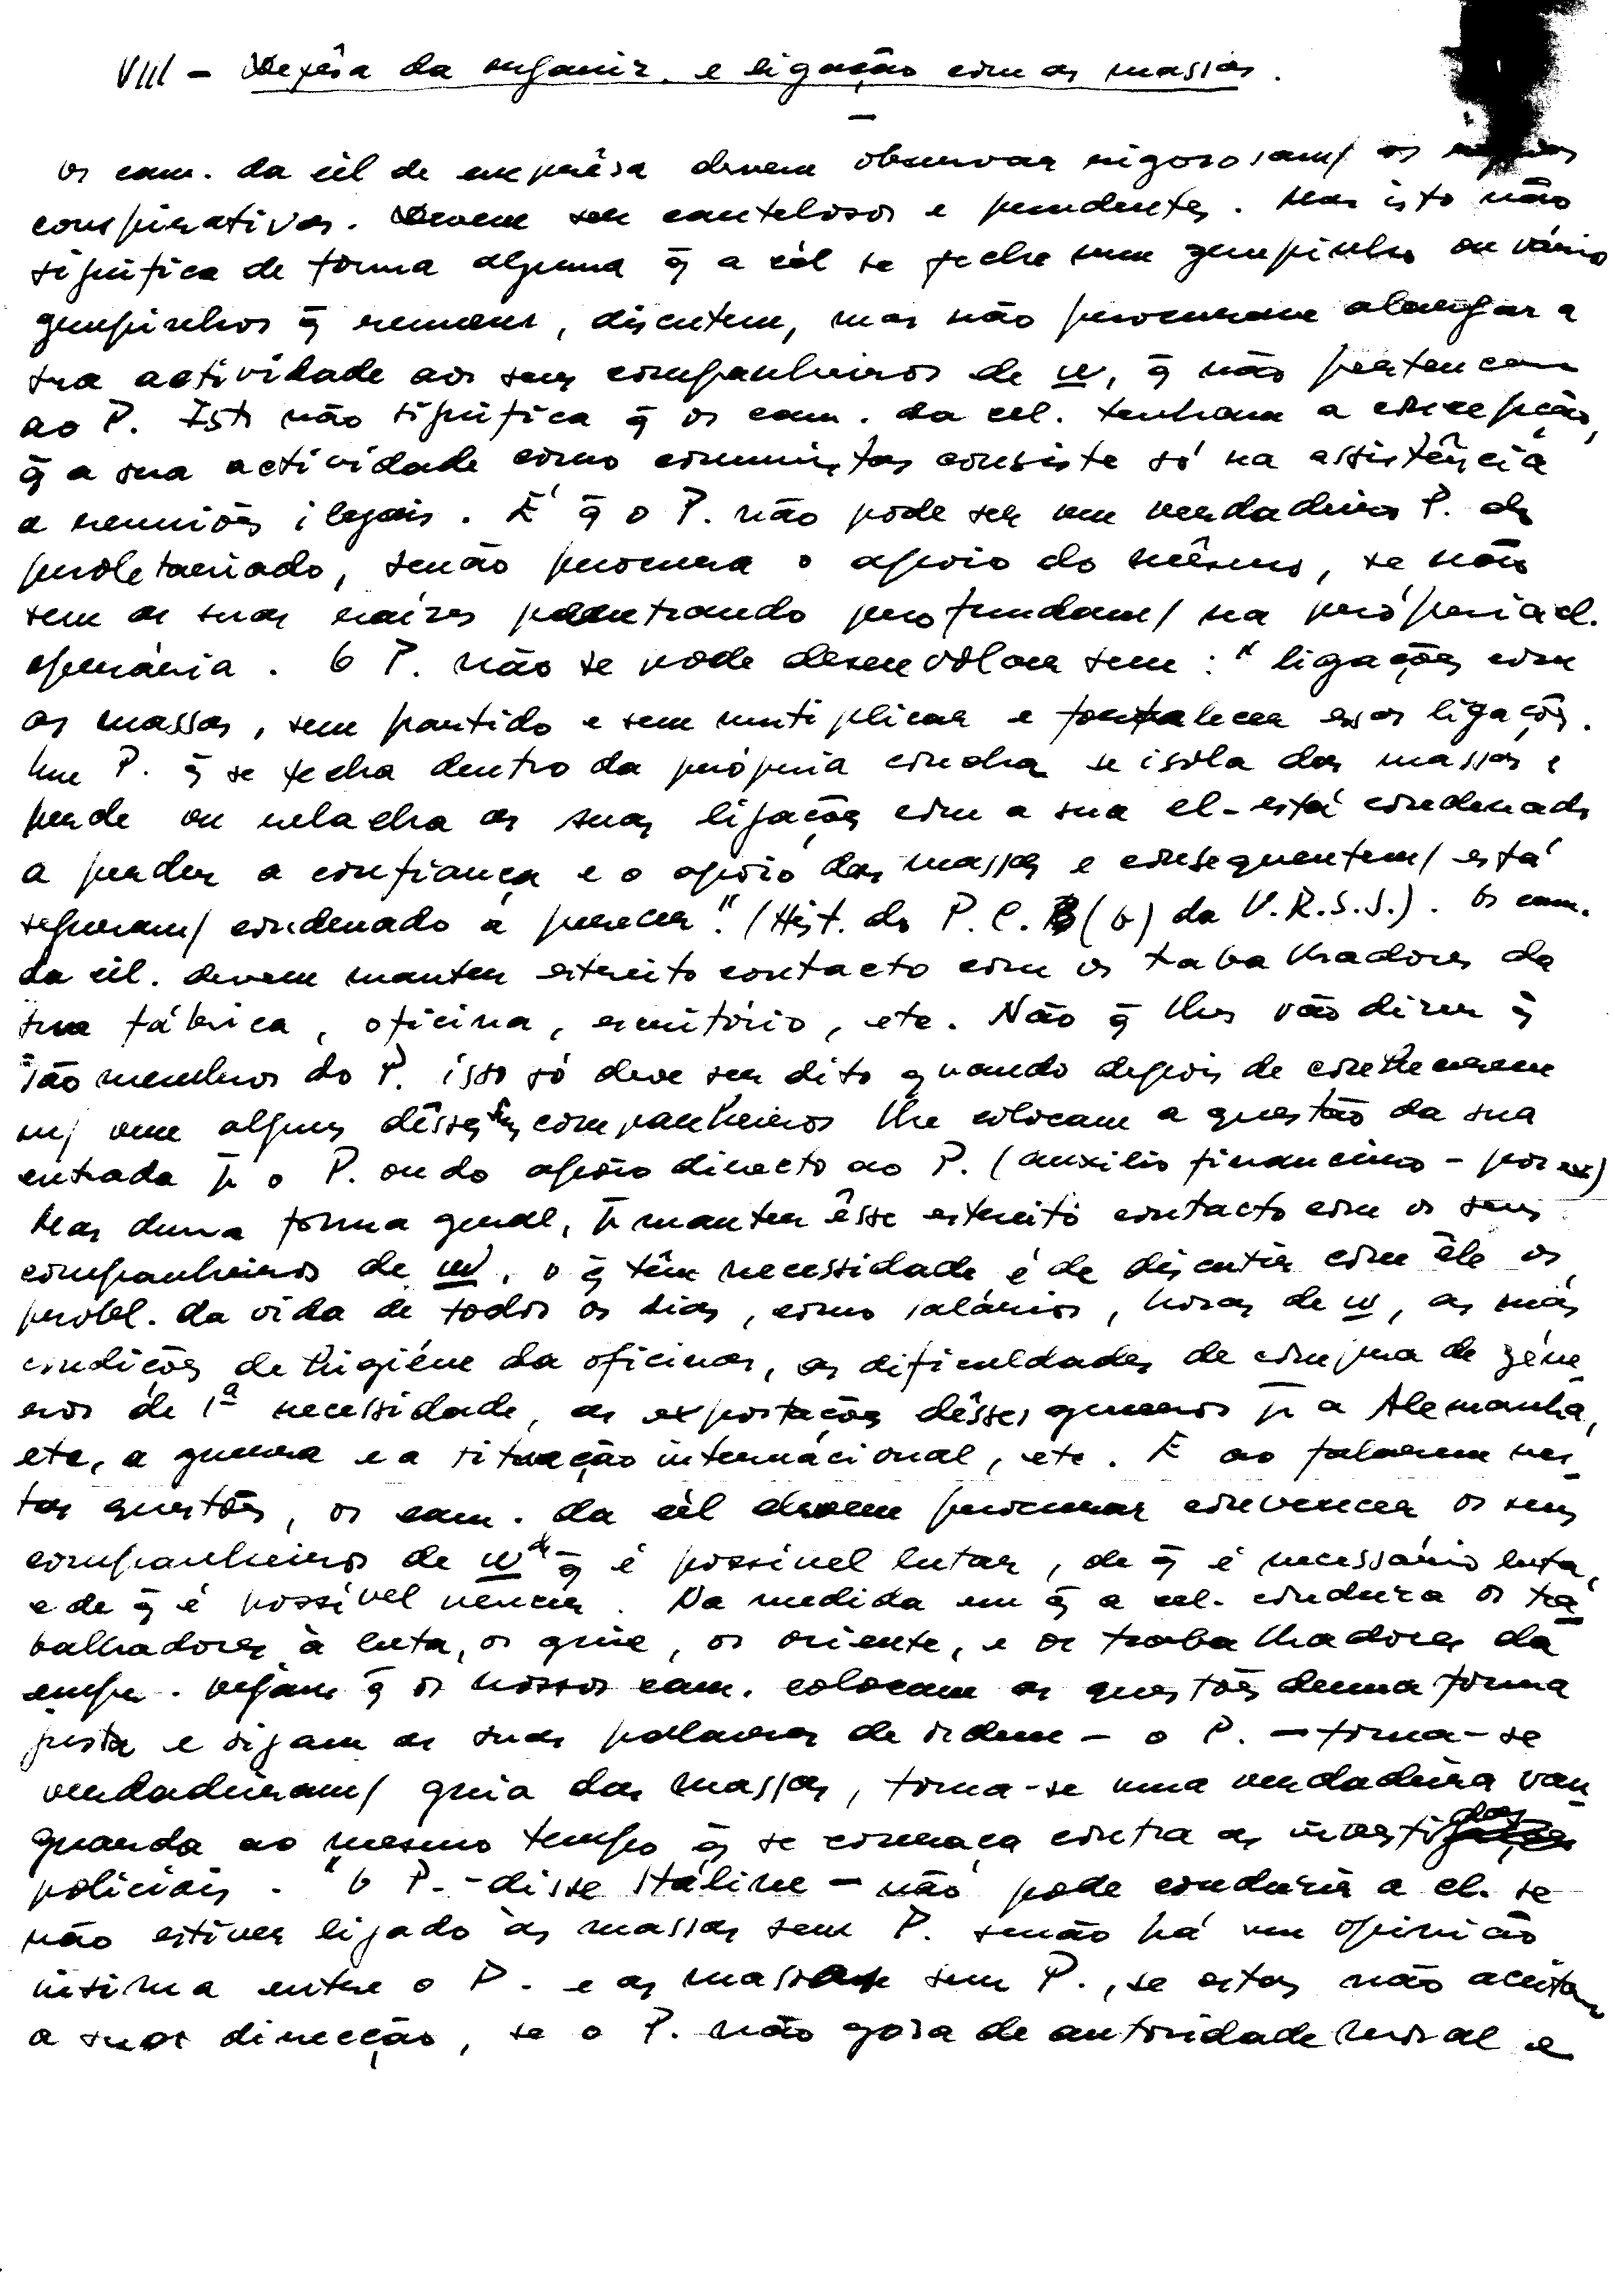 VIII - Defêsa da organiz. e ligação com as massas.
os cam. da cél de emprêsa devem observar rigorosam/ as
conspirativas. Devem ser cautelosos e prudentes. Mas isto não
significa de forma alguma q̄ a cél se feche num grupinho ou vários
grupinhos q̄ reunem, discutem, mas não procuram alargar a
sua actividade aos seus companheiros de w, q̄ não pertencem
ao P. Isto não significa q̄ os cam. da cel. tenham a concepção,
q̄ a sua actividade como comunistas consiste só na assistência
a reuniões ilegais. É q̄ o P. não pode ser um verdadeiro P. do
proletariado, senão procura o apoio do mêsmo, se não
tem as suas raízes penetrando profundam/ na própria cl.
operária. O P. não se pode desenvolver sem: "ligações com
as massas, sem partido e sem multiplicar e fortalecer essas ligações.
Um P. q̄ se fecha dentro da própria concha se isola das massas e
perde ou relacha as suas ligações com a sua cl- está condenado
a perder a confiança e o apoio das massas e consequentem/ está
seguram/ condenado a perecer." (Hist. do P. C. (b) da U.R.S.S.). Os cam.
da cél. devem manter estreito contacto com os trabalhadores da
sua fábrica, oficina, escritório, etc. Não q̄ lhes vão dizer q̄
são membros do P. isso só deve ser dito quando depois de conhecerem
m/ bem alguns dêsses seus companheiros lhe colocam a questão da sua
entrada p̄ o P. ou do apoio directo ao P. (auxilio financeiro - por ex)
Mas duma forma geral, p̄ manter êsse estreito contacto com os seus
companheiros de w, o q̄ têm necessidade é de discutir com êle os
probl. da vida de todos os dias, como salários, horas de w, as más
condições de higiéne da oficinas, as dificuldades de compra de géne_
ros de 1ª necessidade, as exportações dêsses generos p̄ a Alemanha,
etc, a guerra e a situação internacional, etc. E ao falarem nes_
tas questões, os cam. da cél devem procurar convencer os seus
companheiros de w de q̄ é possivel lutar, de q̄ é necessário lutar,
e de q̄ é possível vencer. Na medida em q̄ a cel. conduza os tra_
balhadores à luta, os guie, os oriente, e os trabalhadores da
empr. vejam q̄ os nossos cam. colocam as questões duma forma
justa e sigam as suas palavras de ordem - o P. - torna-se
verdadeiram/ guia das massas, torna-se uma verdadeira van_
guarda ao mesmo tempo q̄ se couraça contra as investidas
policiais. "O P. - disse Stáline - não pode conduzir a cl. se
não estiver ligado às massas sem P. senão há um opinião
intima entre o P. e as massas sem P., se estas não aceitam
a suas direcção, se o P. não goza de autoridade moral e